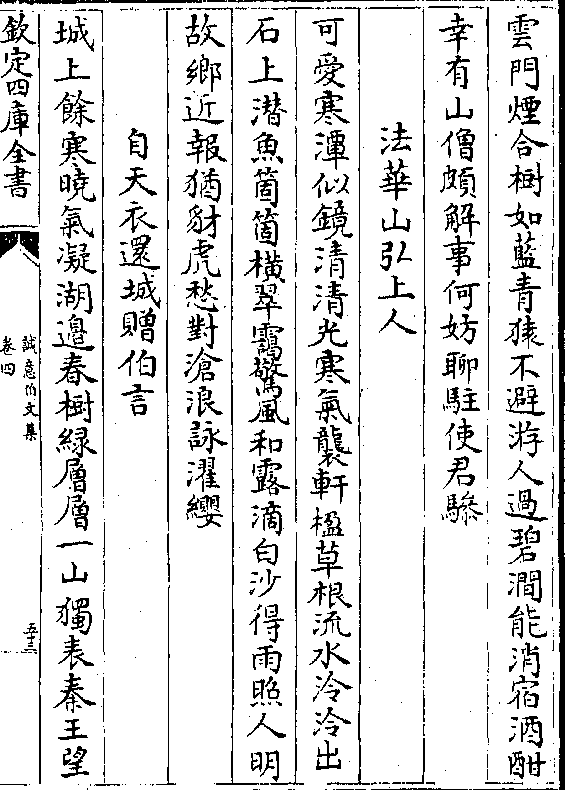 雲門煙合樹如藍青猿不避游人過碧澗能消宿酒酣
幸有山僧頗解事何妨聊駐使君驂
法華山弘上人
可愛寒潭似鏡清清光寒氣襲軒楹草根流水泠泠出
石上潛魚箇箇橫翠靄驚風和露滴白沙得雨照人明
故鄉近報猶豺虎愁對滄浪詠濯纓
自天衣還城贈伯言
城上餘寒曉氣凝湖邉春樹緑層層一山獨表秦王望
欽定四庫全書
誠意伯文集
卷四
五十三